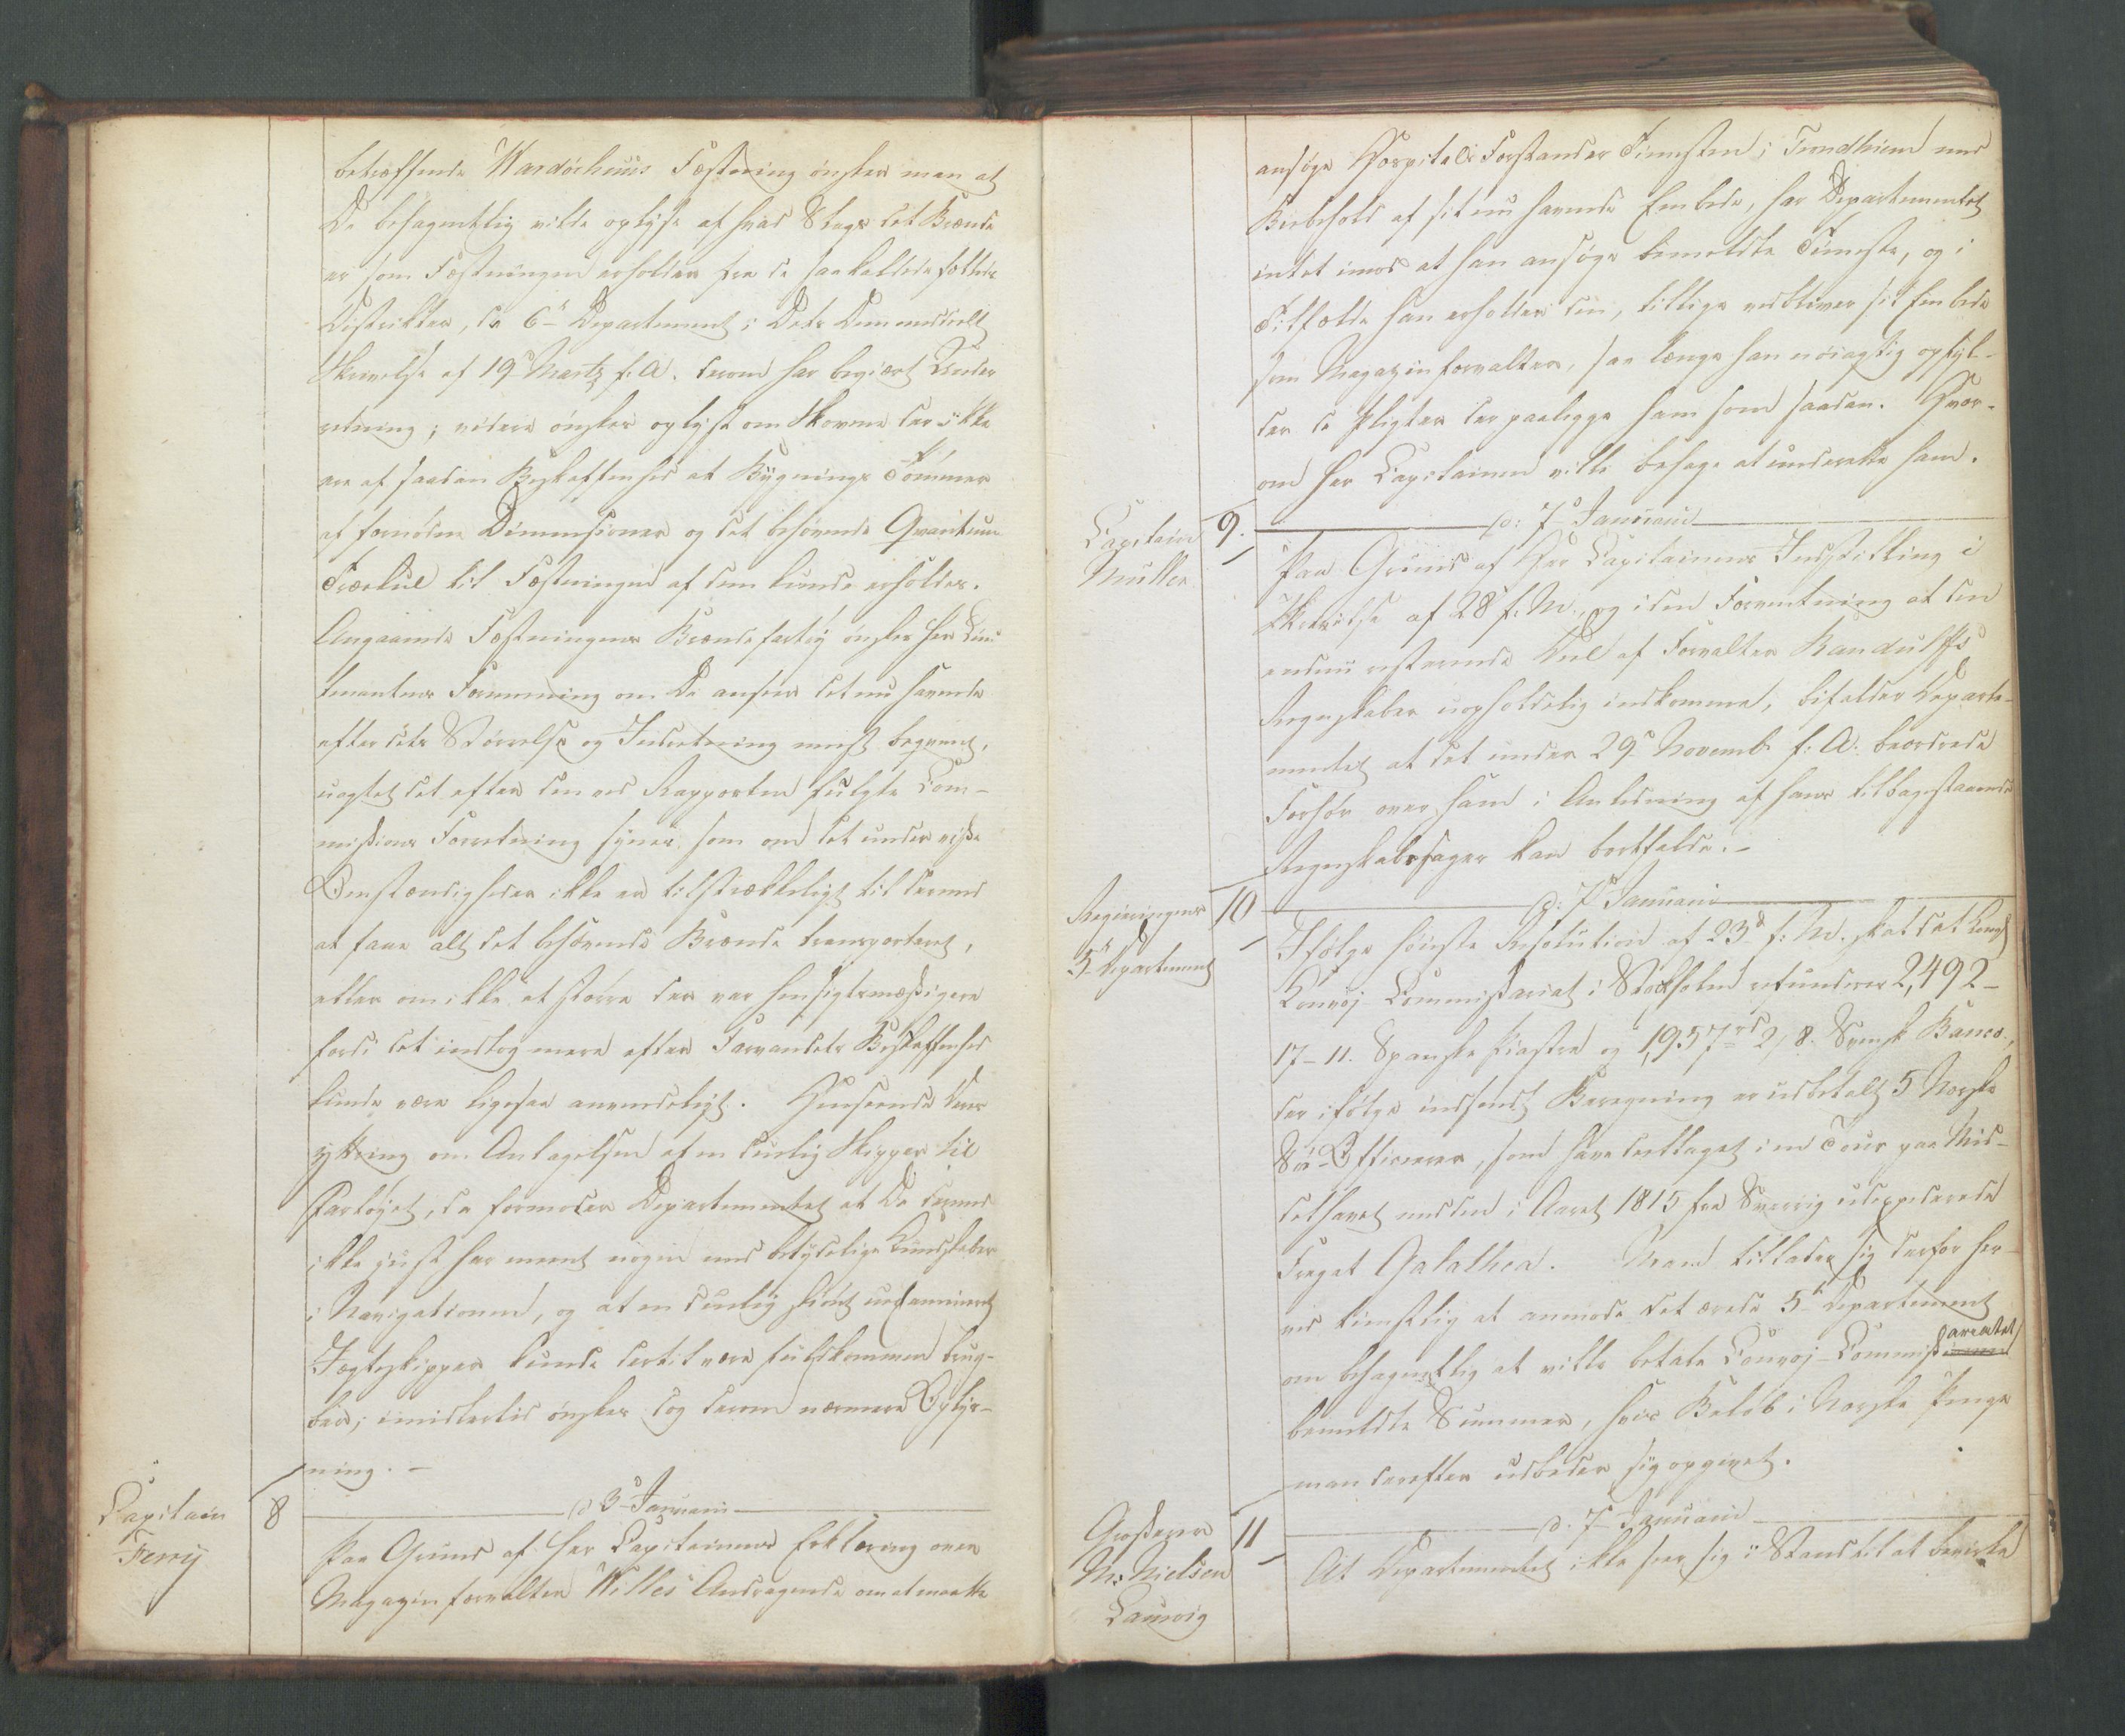 betreffende Wardöehuus Fæstning ønsker man at
De behageligt vilde oplyse af hvad Slags det Brænde
er som Fæstningen erholder fra de saakaldede fælleds
Distrikter, da 6te Departement i Dets Dem meddeelt
Skrivelse af 19de Martz f: A. derom har begiært Under
retning; videre ønskes oplyst om Skovene der ikke
ere af saadan Beskaffenhed at Bygnings Tømmer
af fornødne Dimensioner og det behøvende Qvantum
Trækul til Fæstningen af dem kunde erholdes.
Angaaende Fæstningens Brændefartøy ønskes Herr Lieu
tenantens Formening om De anseer det nu havende
efter dets Størrelse og Indretning meest beqvemt,
uagtet det efter den ved Rapporten fulgte Com-
missions Forretning synes som om det under visse
Omstændigheder ikke er tilstrækkeligt til dermed
at faae alt det behøvende Brænde transporteret,
eller om ikke et større der var hensigtsmæssigere
fordi det indtog mere efter Farvandets Beskaffenhed
kunde være ligesaa anvendeligt. Henseende Deres
yttring om Antagelsen af en duelig Skipper til
Fartøyet, da formoder Departementet at De dermed
ikke just har meent nogen med betydelige Kundskaber
i Navigationen, og at en duelig skiønt uexamineret
Jægteskipper kunde dertil være fuldkommen brug-
bar; imidlertid ønskes dog derom nærmere Oplys-
ning. -
Capitain
Ferry
8
d 3de Januarii
Paa Grund af Herr Capitainens Erklæring over
Magazinforvalter Willes Andragende om at maatte
ansøge Hospitals Forstander Tienesten i Trondhiem med
Bibehold af sit nu havende Embede, har Departementet
intet imod at han ansøge bemeldte Tieneste, og i
Tilfælde han erholder den, tillige vedbliver sit Embede
som Magazinforvalter, saa længe han nøiagtig opfyl-
der de Pligter der paaligge ham som saadan. Hvor-
om Herr Capitainen ville behage at underrette ham.
Capitain
Müller
9.
d: 7de Januarii
Paa Grund af Herr Capitainens Indstilling i
Skrivelse af 28de f: M., og i den Forventning at den
endnu resterende Deel af Forvalter Randulffs
Regnskaber uopholdelig indkomme, bifalder Departe-
mentet at det under 29de Novembr f: A. beordrede
Forhør over ham i Anledning af hans tilbagestaaende
Regnskabssager kan bortfalde. -
Regieringens
5te Departement
10
d: 7de Januarii
Ifølge høieste Resolution af 23de f: M. skal det kongl
Convoj Commissariat i Stockholm refunderes 2,492 -
17 - 11. Spanske Piastre og 1,957 rd 2, 8. Svensk Banco.,
der ifølge indsendt Beregning er udbetalt 5 Norske
Søe-Officierer, som have deeltaget i en Tour paa Mid-
delhavet med den i Aaret 1815 fra Sverrig udexpederede
Fregat Galathea. Man tillader sig derfor her-
ved tienstlig at anmode det ærede 5te Departement
om behageligtlig at ville betale Convoj-Commissariatet
bemeldte Summer, hvis Beløb i Norske Penge
man derefter udbeder sig opgivet.
Grosserer
M: Nielsen
Laurvig
11
d. 7de Januarii
At Departementet ikke seer sig i Stand til at bevirke